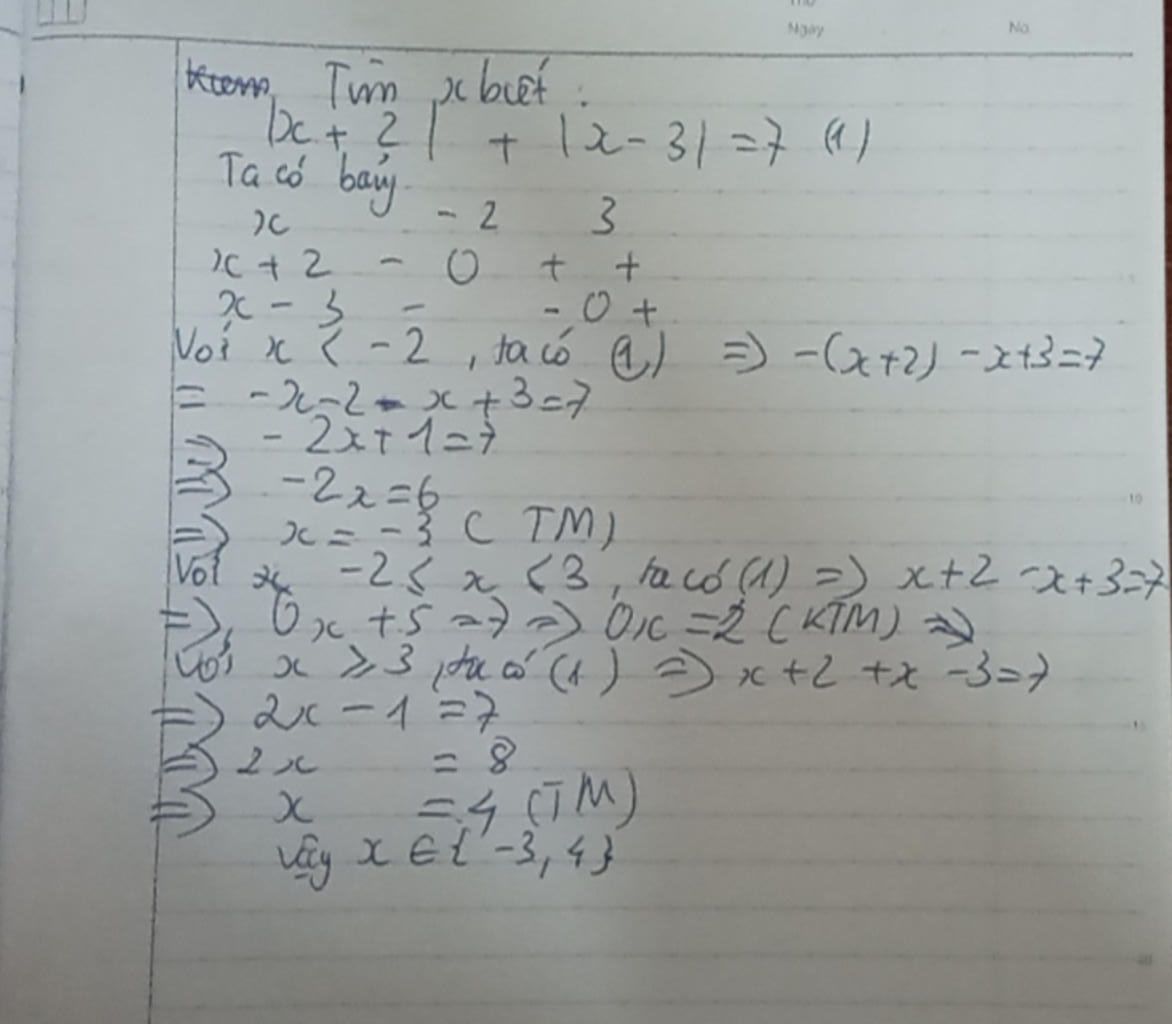 Ngày No.
Tìm x biết :
|x + 2| + |x - 3| = 7 (1)
Ta có bảng
x -2 3
x + 2 - 0 + +
x - 3 - - 0 +
Với x < -2 , ta có (1) => -(x+2) - x+3=7
= -x-2 - x + 3 = 7
=> - 2x + 1 = 7
=> -2x = 6
=> x = -3 ( TM)
Với x -2 ≤ x < 3 , ta có (1) => x+2 -x+3=7
=> 0x + 5 = 7 => 0x = 2 (KTM) =>
Với x ≥ 3 , ta có (1) => x+2 +x -3=7
=> 2x - 1 = 7
=> 2x = 8
=> x = 4 (TM)
Vậy x ∈ { -3, 4}